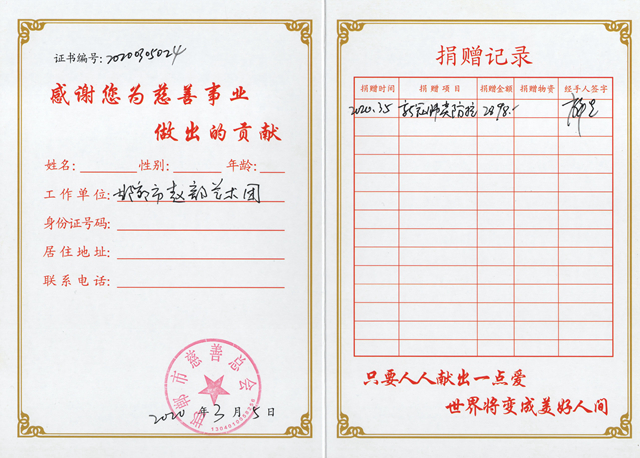 证书编号:20200305024
感谢您为慈善事业
做出的贡献
姓名: 性别: 年龄:
工作单位:邯郸市赵韵艺术团
身份证号码:
居住地址:
联系电话:
邯郸市慈善总会
2020年3月5日
捐赠记录
捐赠时间 捐赠项目 捐赠金额 捐赠物资 经手人签字
2020.3.5 新冠肺炎防控 2898.-
只要人人献出一点爱
世界将变成美好人间